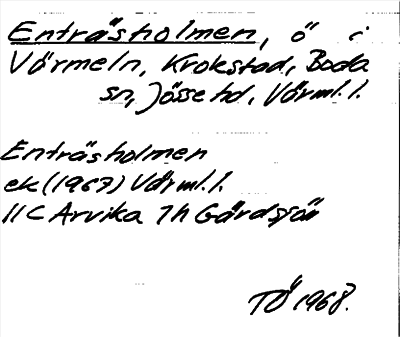 Enträsholmen, ö i
Värmeln, Krokstad, Boda
sn, Jösse hd, Värml. l.
Enträsholmen
ek (1967) Värml. l.
11C Arvika 7h Gårdsjön
TÖ 1968.